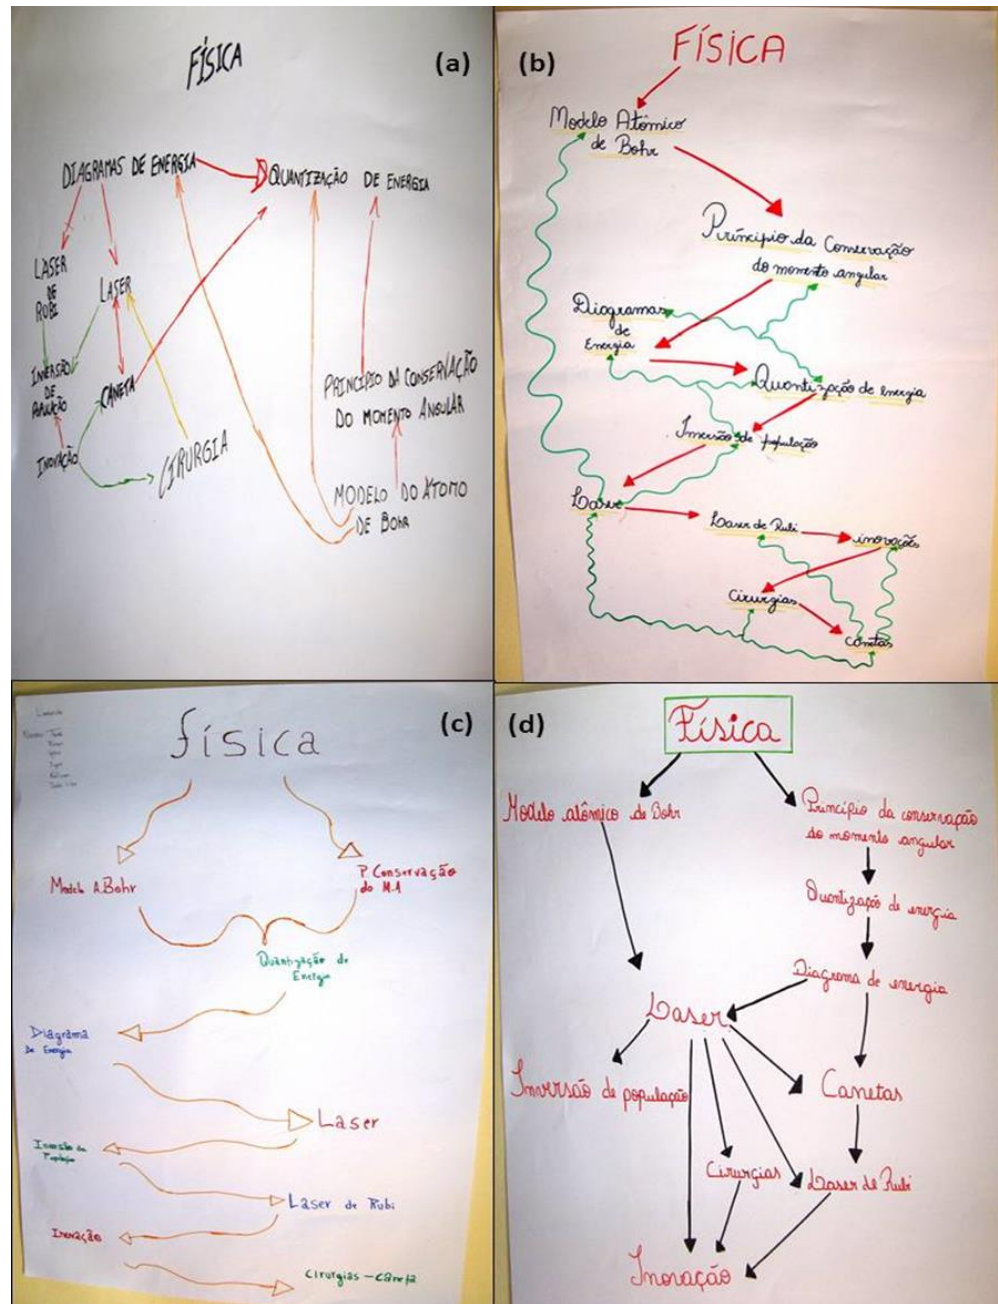 FÍSICA
(a)
DIAGRAMAS DE ENERGIA
QUANTIZAÇÃO DE ENERGIA
LASER
DE
RUBI
LASER
INVERSÃO
DE
POPULAÇÃO
CANETA
PRINCIPIO DA CONSERVAÇÃO
DO MOMENTO ANGULAR
INOVAÇÃO
CIRURGIA
MODELO DO ÁTOMO
DE BOHR
(b)
FÍSICA
Modelo Atômico
de Bohr
Príncipio da Conservação
do momento angular
Diagramas
de
Energia
Quantização de energia
Inversão de população
Laser
Laser de Rubi
inovações
Cirurgias
canetas
física
(c)
Modelo A.Bohr
P. Conservação
do M.A
Quantização de
Energia
Diagrama
De Energia
Laser
Inversão de
População
Laser de Rubi
Inovação
Cirurgias - Caneta
(d)
Física
Modelo atômico de Bohr
Princípio da conservação
do momento angular
Quantização de energia
Diagrama de energia
Laser
Inversão de população
Canetas
Cirurgias
Laser de Rubi
Inovação